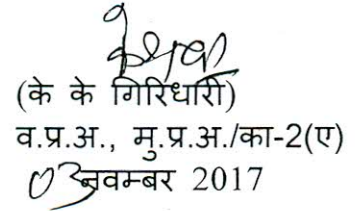 (के के गिरिधारी)
व.प्र.अ., मु.प्र.अ./का-2(ए)
03 नवम्बर 2017